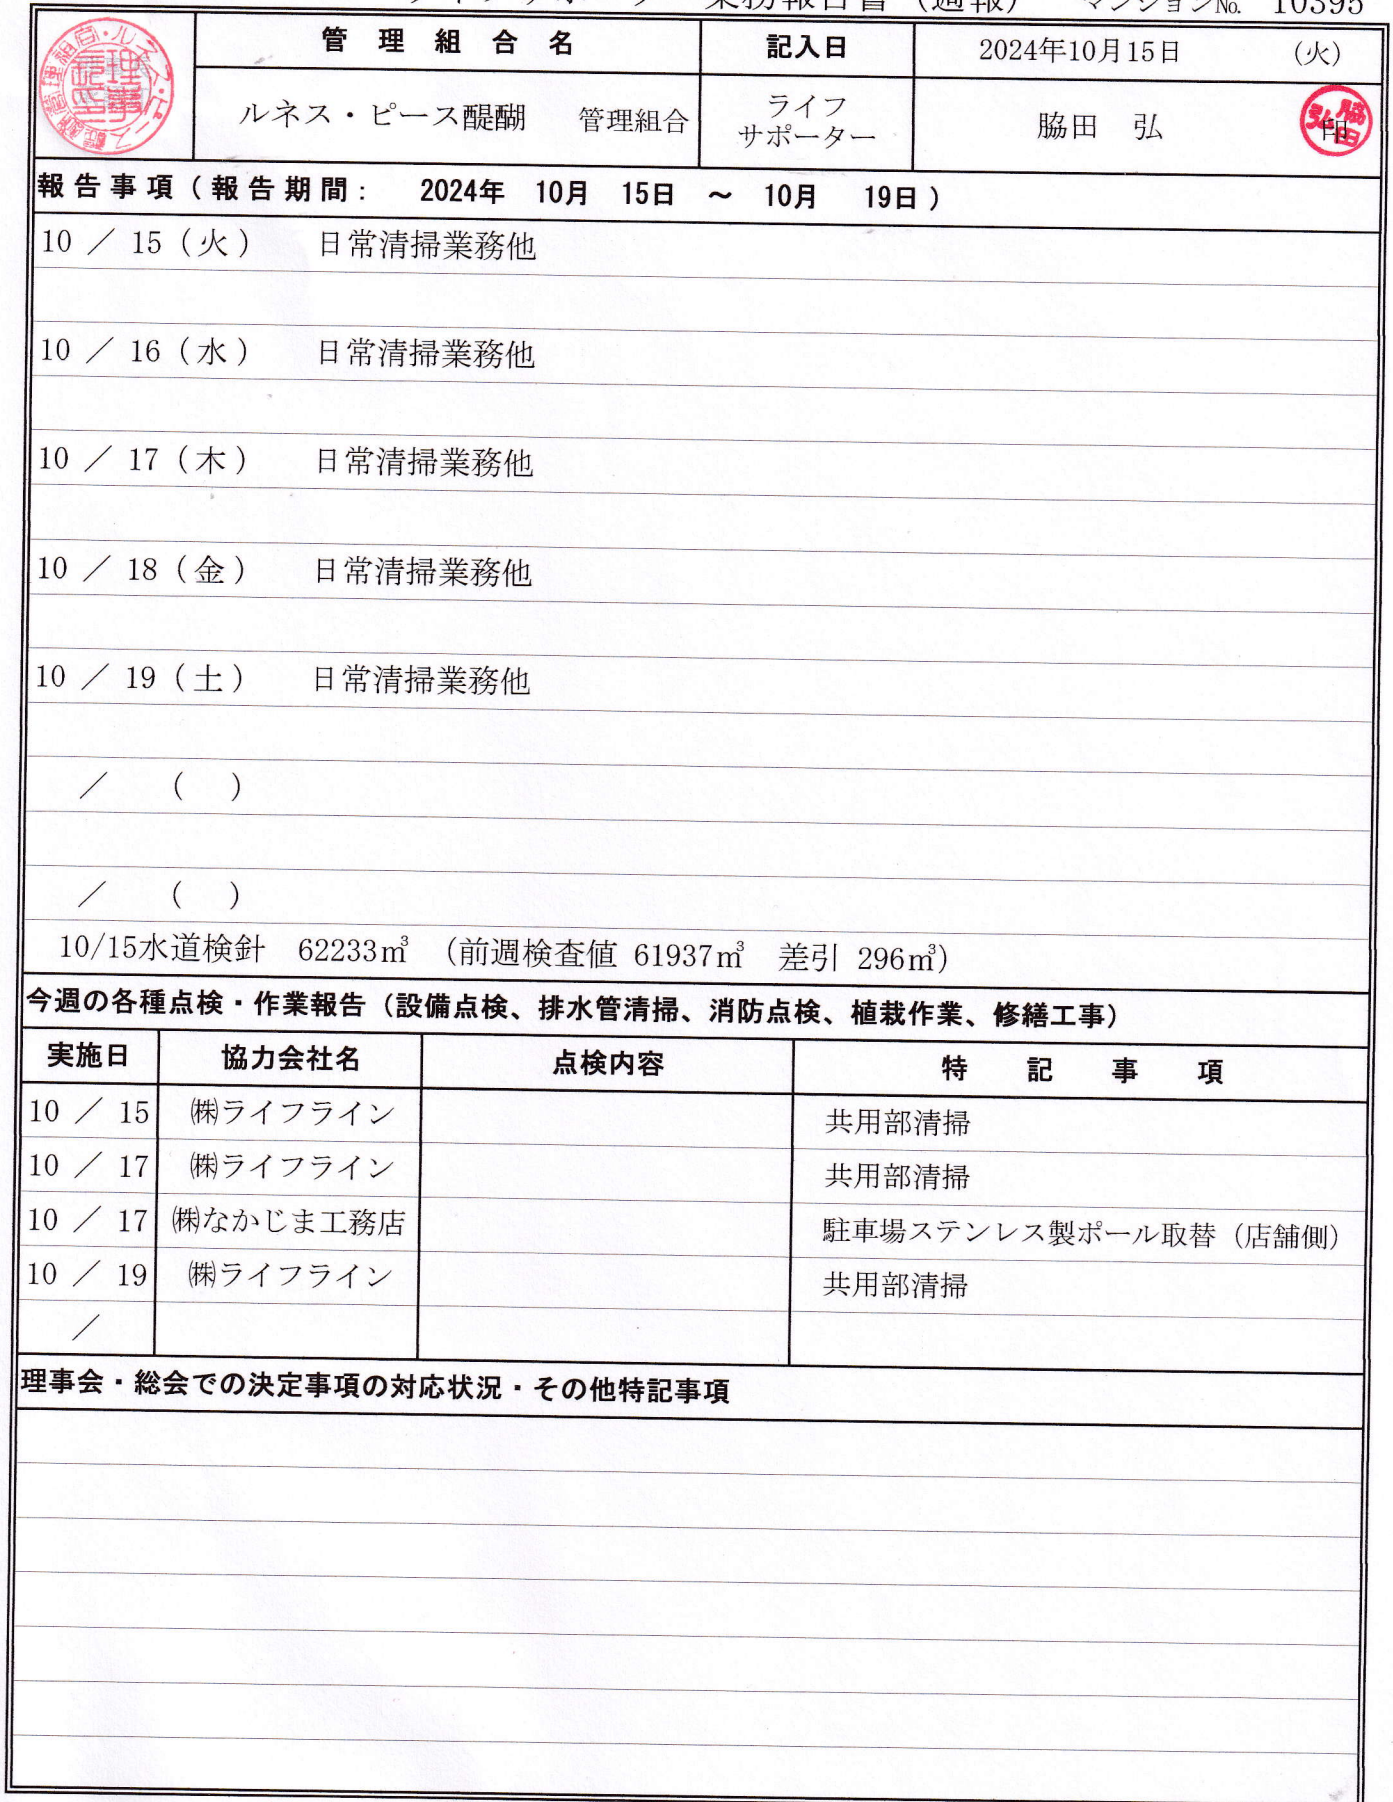 業務報告書（週報） マンションNo. 10395
管理組合名 記入日 2024年10月15日 （火）
ルネス・ピース醍醐 管理組合 ライフサポーター 脇田 弘 印
報告事項（報告期間： 2024年 10月 15日 ～ 10月 19日）
10 ／ 15（火） 日常清掃業務他
10 ／ 16（水） 日常清掃業務他
10 ／ 17（木） 日常清掃業務他
10 ／ 18（金） 日常清掃業務他
10 ／ 19（土） 日常清掃業務他
／ （ ）
／ （ ）
10/15水道検針 62233㎥ （前週検査値 61937㎥ 差引 296㎥）
今週の各種点検・作業報告（設備点検、排水管清掃、消防点検、植栽作業、修繕工事）
実施日 協力会社名 点検内容 特記事項
10 ／ 15 ㈱ライフライン 共用部清掃
10 ／ 17 ㈱ライフライン 共用部清掃
10 ／ 17 ㈱なかじま工務店 駐車場ステンレス製ポール取替（店舗側）
10 ／ 19 ㈱ライフライン 共用部清掃
／
理事会・総会での決定事項の対応状況・その他特記事項